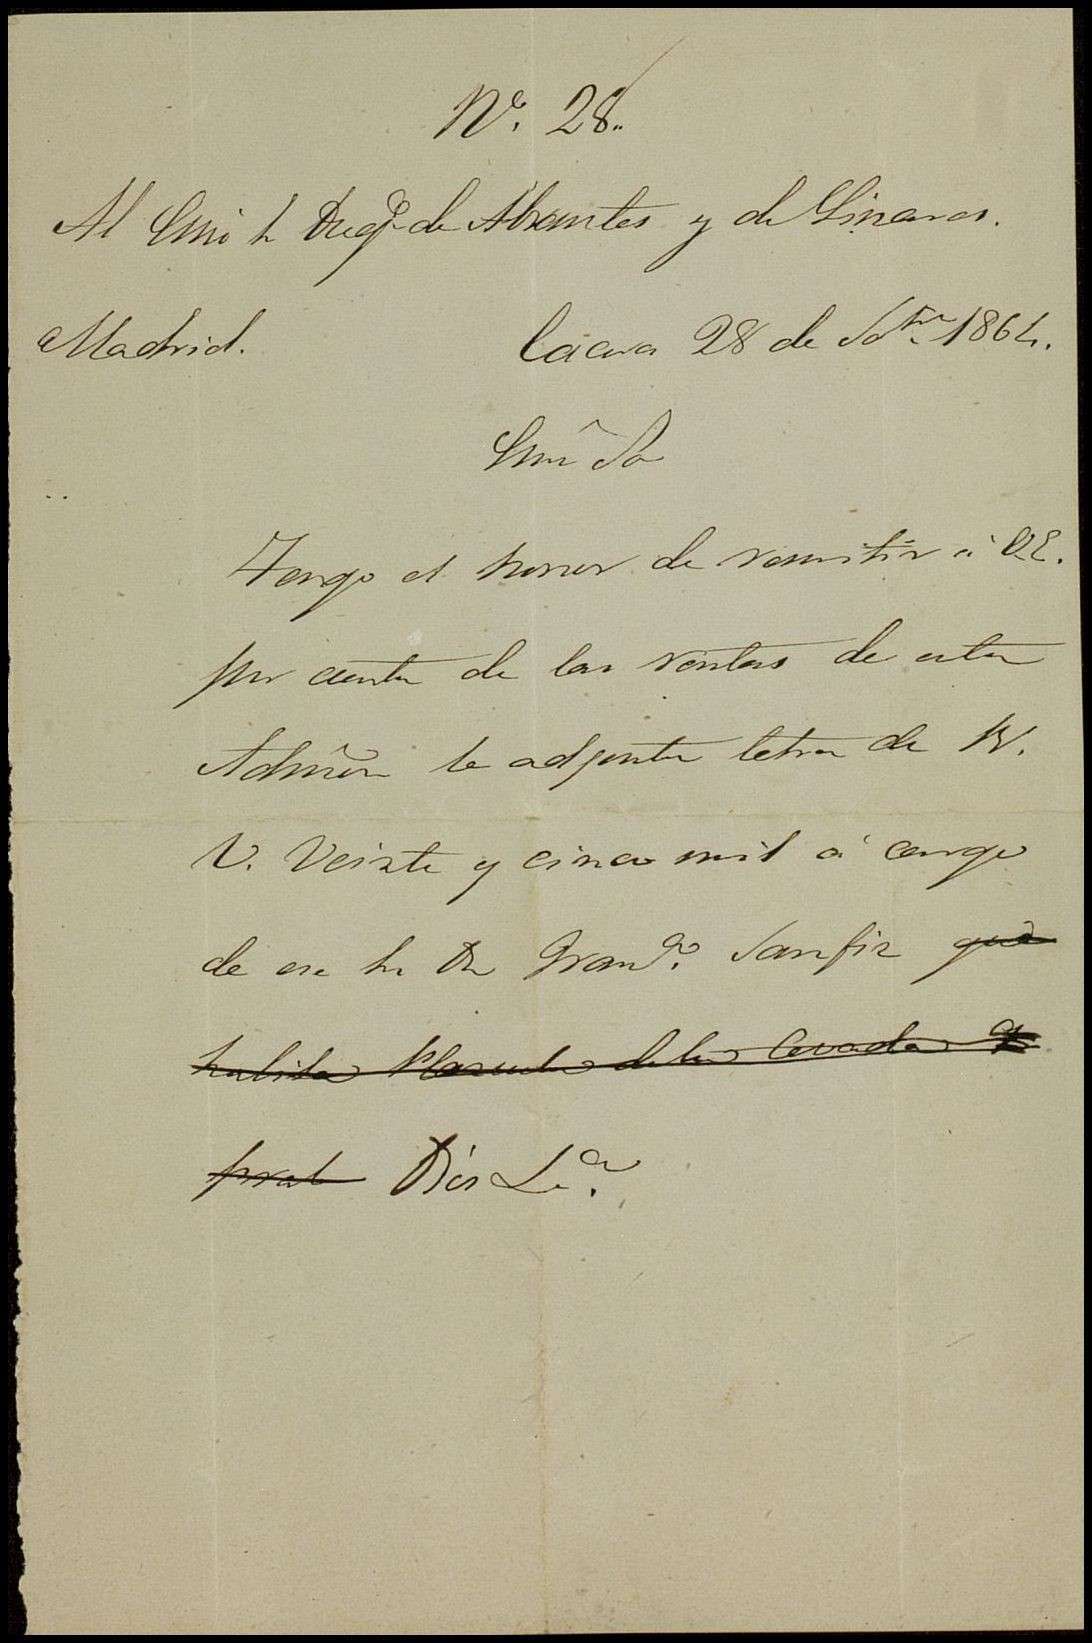 Nº. 28.
Al Exmô Sr Duq.e de Abrantes y de Linares.
Madrid. Cáceres 28 de Sbre 1864.
Exmô Sor
Tengo el honor de remitir á V.E.
por cuenta de las rentas de esta
Admôn la adjunta letra de R.
V. Veinte y cinco mil á cargo
de ese Sr Dn Franco. Sanfiz que
habita Plazuela de la Cevada
pral Dios La.